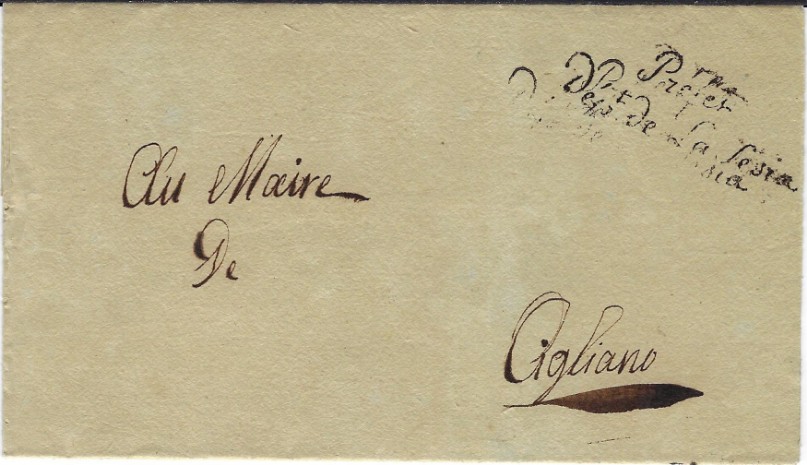 Prefet
Dept de La Sesia
Au Maire
De
Cigliano